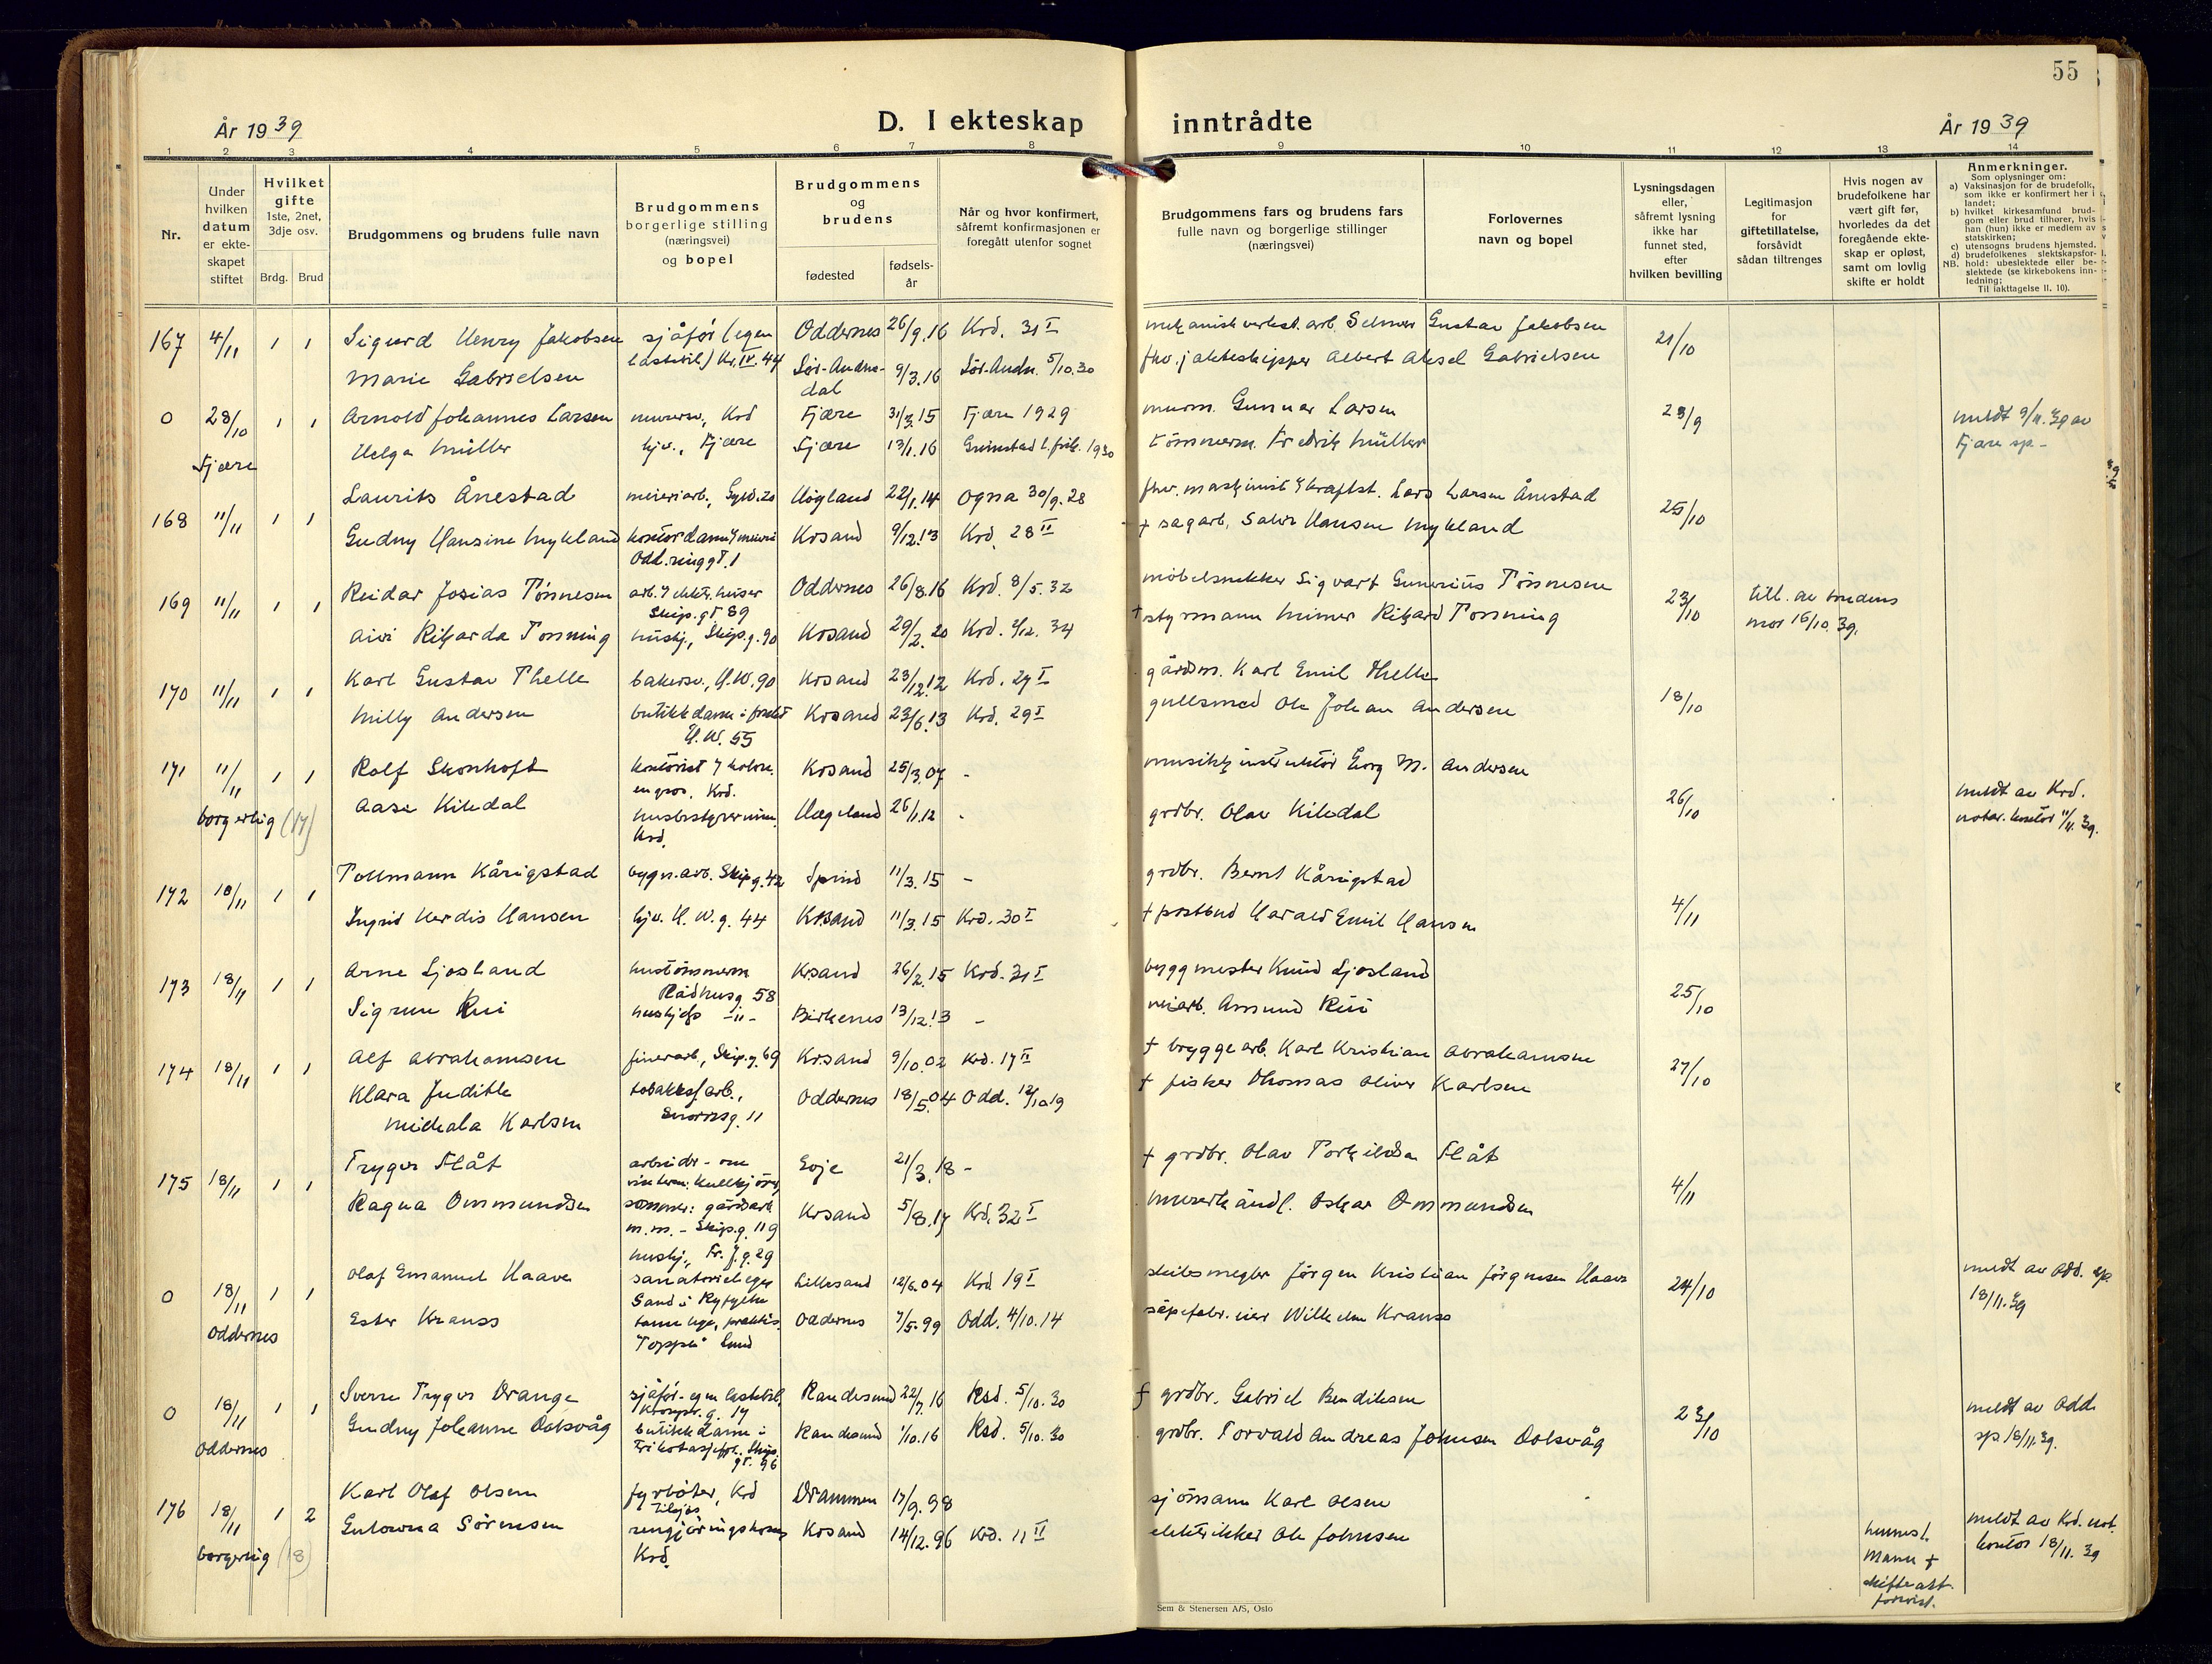 55
År 1939
D. I ekteskap inntrådte
År 1939
1 2 3 4 5 6 7 8 9 10 11 12 13 14
Nr.
Under
hvilken
datum
er ekte-
skapet
stiftet
Hvilket
gifte
1ste, 2net,
3dje osv.
Brdg. Brud
Brudgommens og brudens fulle navn
Brudgommens
borgerlige stilling
(næringsvei)
og bopel
Brudgommens
og
brudens
fødested
fødsels-
år
Når og hvor konfirmert,
såfremt konfirmasjonen er
foregått utenfor sognet
Brudgommens fars og brudens fars
fulle navn og borgerlige stillinger
(næringsvei)
Forlovernes
navn og bopel
Lysningsdagen
eller,
såfremt lysning
ikke har
funnet sted,
efter
hvilken bevilling
Legitimasjon
for
giftetillatelse,
forsåvidt
sådan tiltrenges
Hvis nogen av
brudefolkene har
vært gift før,
hvorledes da det
foregående ekte-
skap er opløst,
samt om lovlig
skifte er holdt
Anmerkninger.
Som oplysninger om:
a) Vaksinasjon for de brudefolk,
som ikke er konfirmert her i
landet;
b) hvilket kirkesamfund brud-
gom eller brud tilhører, hvis
han (hun) ikke er medlem av
statskirken;
c) utensogns brudens hjemsted.
d) brudefolkenes slektskapsfor-
NB. hold: ubeslektede eller be-
slektede (se kirkebokens inn-
ledning;
Til iakttagelse II. 10).
167 4/11 1 1 Sigurd Henry Jakobsen sjåfør (egen Oddernes 26/9.16 Krd. 31 I mekanisk verkst. arb. Selmer Gustav Jakobsen 21/10
lastebil) Kr. IV. 44
Marie Gabrielsen Sør-Audne-
dal 9/3.16 Sør-Audn. 5/10.30 fhv. jakteskipper Albert Aksel Gabrielsen
0 28/10 1 1 Arnold Johannes Larsen murersv., Krd Fjære 31/3.15 Fjære 1929 murm. Gunnar Larsen 23/9 meldt 9/11.39 av
Fjære Helga Müller hjv., Fjære Fjære 13/1.16 Grimstad l. frik. 1930 tømmerm. Fredrik Müller Fjære sp.
168 11/11 1 1 Laurits Ånestad meieriarb., Gyld. 20 Høgland 22/1.14 Ogna 30/9.28 fhv. maskinist v/kraftst. Lars Larsen Ånestad 25/10
Gudny Hansine Mykland kontordame v/meieri Krsand 9/12.13 Krd. 28 II + sagarb. Salve Hansen Mykland
Odd. ringgt. 1
169 11/11 1 1 Reidar Josias Tønnesen arb. v/elektr. huser Oddernes 26/8.16 Krd. 8/5.32 møbelsnekker Sigvart Gunerius Tønnesen 23/10 till. av brudens
Skip. gt. 89 mor 16/10.39.
Aivi Rikarda Tønning hushj., Skip. g. 90 Krsand 29/2.20 Krd. 2/12. 34 + styrmann Mimer Rikard Tønning
170 11/11 1 1 Karl Gustav Thelle bakersv., H.W. 90 Krsand 23/12.12 Krd. 27 I gårdm. Karl Emil Thelle 18/10
Milly Andersen butikkdame i Krsand 23/6.13 Krd. 29 I gullsmed Ole Johan Andersen
H.W. 55
171 11/11 1 1 Rolf Skonhoft kontorist v/ Krsand 25/3.07 - musikkinstruktør Georg M. Andersen 26/10 meldt av Krd.
engros, Krd.
borgerlig (17) Aase Kiledal husbestyrerinne, Hægeland 26/1.12 - grdbr. Olav Kiledal notar. kontor 11/11.39.
Krd.
172 18/11 1 1 Tollmann Kårigstad bygn. arb. Skip. g. 42 Spind 11/3.15 - grdbr. Bernt Kårigstad 4/11
Ingrid Herdis Hansen hjv. H.W. g. 44 Krsand 11/3.15 Krd. 30 I + postbud Harald Emil Hansen
173 18/11 1 1 Arne Ljosland hustømmerm Krsand 26/2.15 Krd. 31 I byggmester Knud Ljosland 25/10
Rådhusg. 58
Sigrun Rui hushj. -"- Birkenes 13/12.13 - veiarb. Amund Rui
174 18/11 1 1 Alf Abrahamsen finerarb., Skip. g. 69 Krsand 9/10.02 Krd. 17 II + bryggearb. Karl Kristian Abrahamsen 27/10
Klara Judithe tobakksfarb., Oddernes 18/5.04 Odd. 12/10 19 + fisker Thomas Oliver Karlsen
Mikala Karlsen Snorresg. 11
175 18/11 1 1 Trygve Flåt arbeider - om Evje 21/3.18 - + grdbr. Olav Torkildsen Flåt 4/11
vinteren: kullkjører,
Ragna Ommundsen sommer: gårdsarb. Krsand 5/8.17 Krd. 32 I Oskar Ommundsen
m.m. - Skip. g. 119
hushj., Fr. J. g. 29
0 18/11 1 1 Olaf Emanuel Haave sanatorielege Lillesand 12/6.04 Krd 19 I skibsmegler Jørgen Kristian Jørgensen Haave 24/10 meldt av Odd. sp.
Sand i Ryfylke 18/11.39
Oddernes Ester Krauss tannlege, praktis. Oddernes 7/5.99 Odd. 4/10.14 såpefabr. eier Wilhelm Krauss
"Toppen" Lund
0 18/11 1 1 Sverre Trygve Drange sjåfør - egen lastebil, Randesund 22/7.16 Rsd. 5/10.30 + grdbr. Gabriel Bendiksen 23/10 meldt av Odd.
Kronpr. g. 17
Oddernes Gudny Johanne Dalsvåg butikkdame i Randesund 1/10.16 Rsd. 5/10.30 grdbr. Torvald Andreas Johnsen Dalsvåg sp. 18/11.39.
Trikotasjeforr. Skip.
gt. 96
176 18/11 1 2 Karl Olaf Olsen fyrbøter, Krd Drammen 17/9.98 sjømann Karl Olsen meldt av Krd. not.
borgerlig (18) Gulowna Sørensen rengjøringskone Krsand 14/12.96 Krd. 11 II elektriker Ole Johnsen hennes 1. kontor 18/11.39
Krd. Mann +
skifteatt.
forevist.
Sem & Stenersen A/S, Oslo